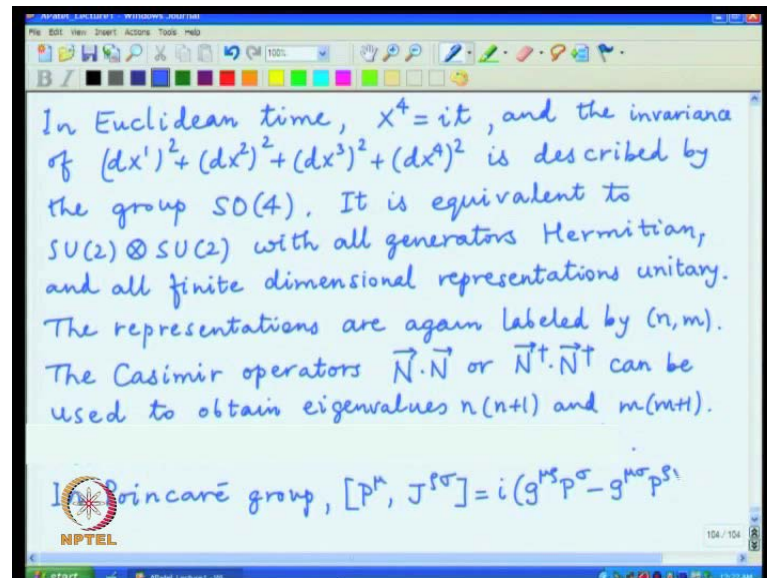 APatel_Lecture1 - Windows Journal
File Edit View Insert Actions Tools Help
100%
B I
In Euclidean time, x⁴ = it, and the invariance
of (dx¹)² + (dx²)² + (dx³)² + (dx⁴)² is described by
the group SO(4). It is equivalent to
SU(2) ⊗ SU(2) with all generators Hermitian,
and all finite dimensional representations unitary.
The representations are again labeled by (n, m).
The Casimir operators N⃗·N⃗ or N⃗†·N⃗† can be
used to obtain eigenvalues n(n+1) and m(m+1).
In Poincaré group, [P^μ, J^ρσ] = i(g^μρ P^σ - g^μσ P^ρ
NPTEL
104 / 104
start